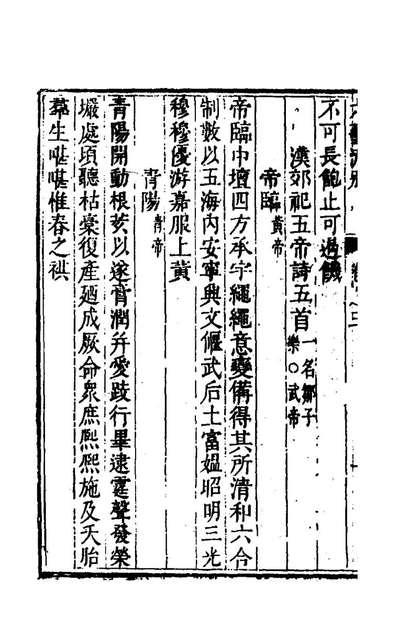 不可長飽止可過饑
漢郊祀五帝詩五首一名鄒子樂○武帝
帝臨黄帝
帝臨中壇四方承宇繩繩意變備得其所清和六合
制數以五海内安寧興文偃武后土富媪昭明三光
穆穆優游嘉服上黄
青陽青帝
青陽開動根荄以遂膏潤并愛跂行畢逮霆聲發榮
壧處頃聽枯槀復產廼成厥命衆庶熙熙施及夭胎
羣生啿啿惟春之祺